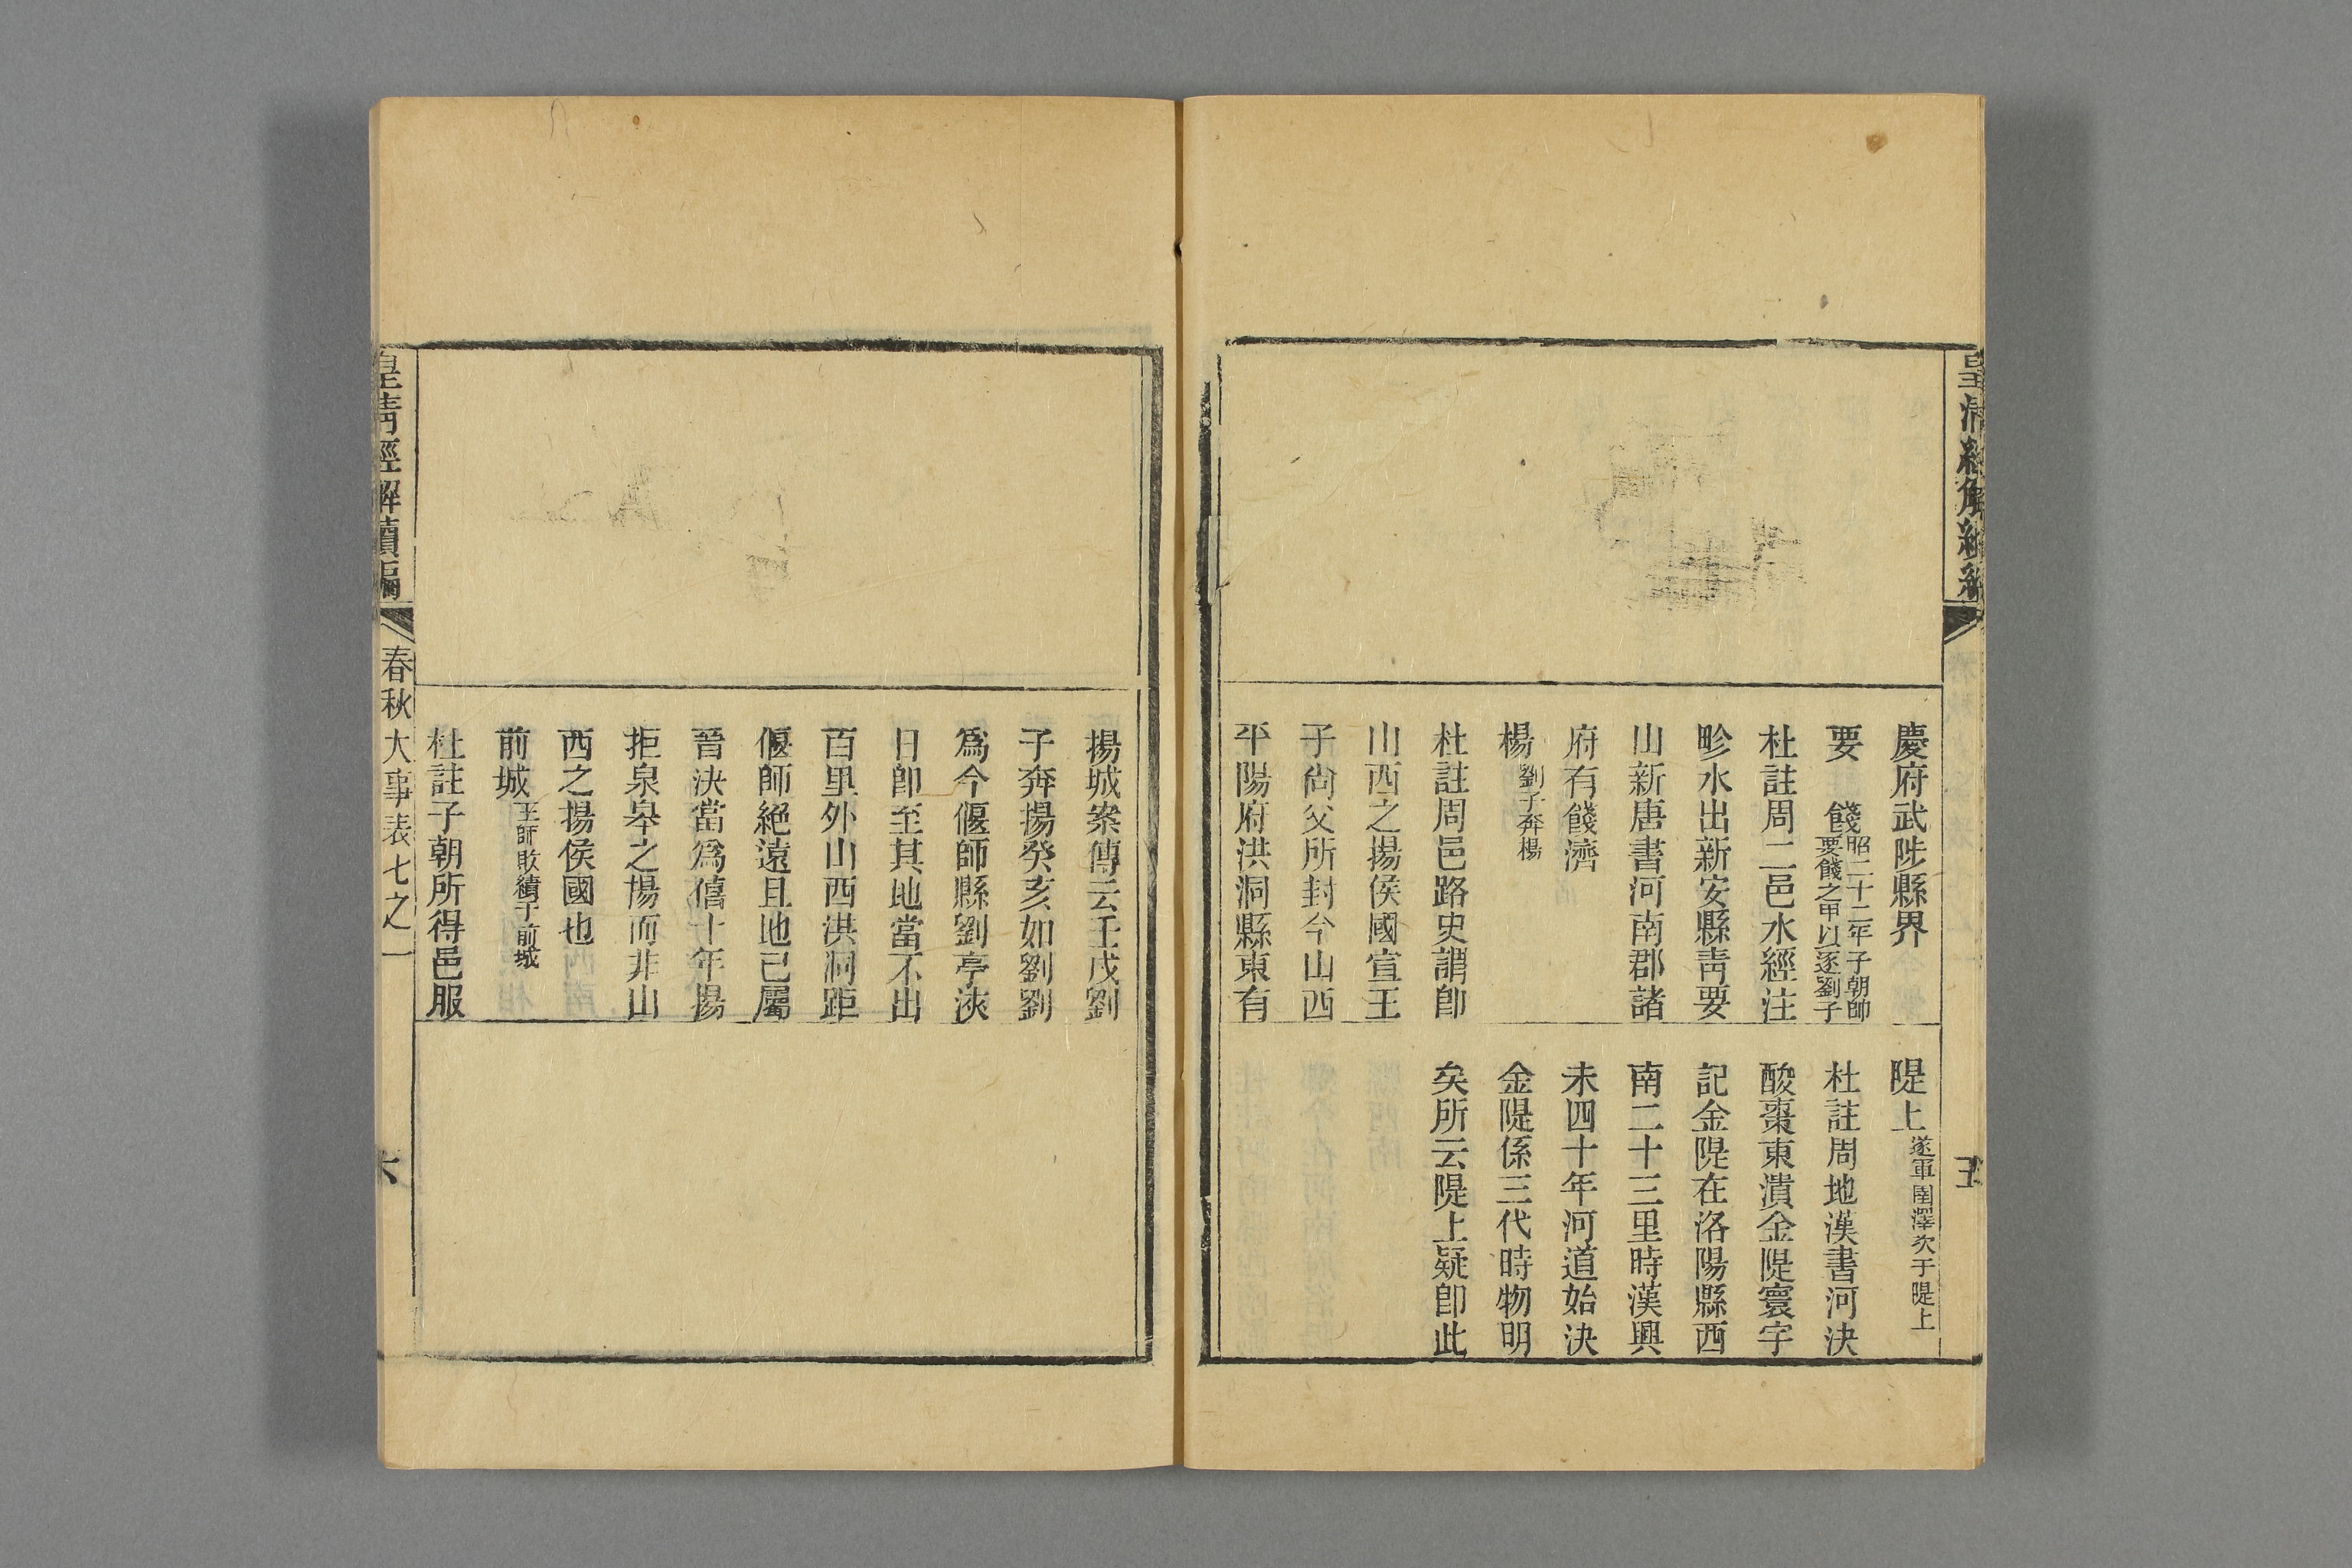 慶府武陟縣界
要　餞昭二十二年子朝帥要餞之甲以逐劉子
杜註周二邑水經注
畛水出新安縣靑要
山新唐書河南郡諸
府有餞濟
楊劉子奔楊
杜註周邑路史謂卽
山西之揚侯國宣王
子尙父所封今山西
平陽府洪洞縣東有
隄上遂軍圍澤次于隄上
杜註周地漢書河決
酸棗東潰金隄寰宇
記金隄在洛陽縣西
南二十三里時漢興
未四十年河道始決
金隄係三代時物明
矣所云隄上疑卽此
五
揚城案傳云壬戌劉
子奔揚癸亥如劉劉
爲今偃師縣劉亭浹
日卽至其地當不出
百里外山西洪洞距
偃師絕遠且地已屬
晉決當爲僖十年揚
拒泉皋之揚而非山
西之揚侯國也
前城王師敗績于前城
杜註子朝所得邑服
皇淸經解續編
春秋大事表七之一
六